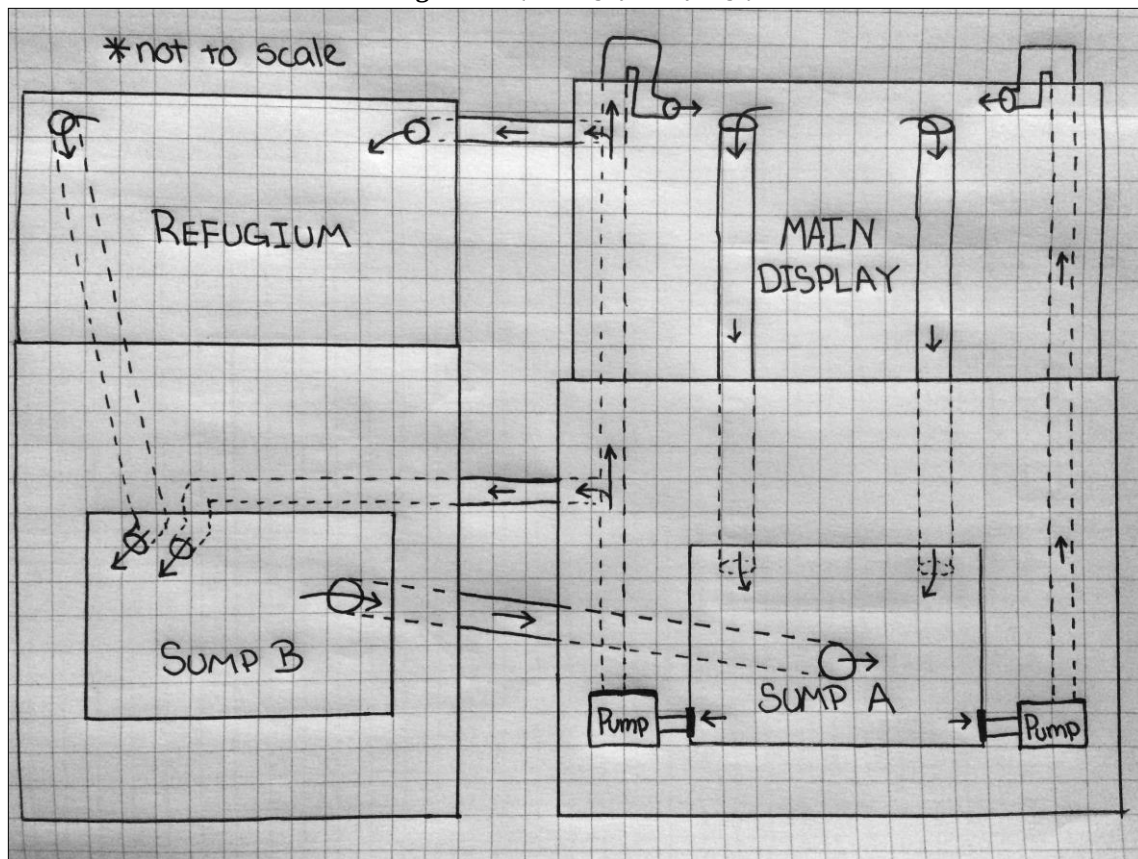 *not to scale
REFUGIUM
MAIN
DISPLAY
SUMP B
SUMP A
Pump
Pump